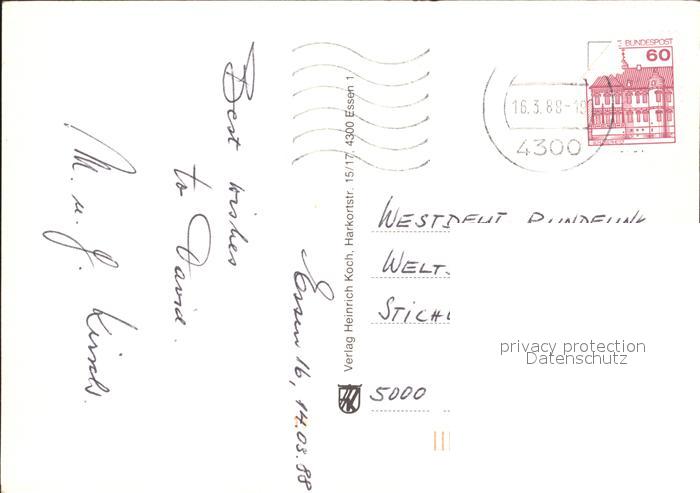 Best wishes
to David.
M. u. J. Kirschs.
Essen 16, 14.03.88
Verlag Heinrich Koch, Harkortstr. 15/17, 4300 Essen 1
BUNDESPOST
60
16.3.88-19
4300
WESTDEUT RUNDFUNK
WELT
STICH
5000
privacy protection
Datenschutz